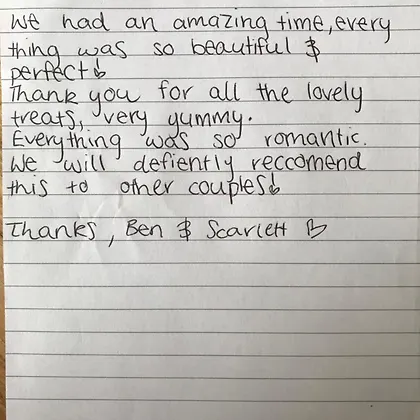 We had an amazing time, every
thing was so beautiful &
perfect!
Thank you for all the lovely
treats, very yummy.
Everything was so romantic.
We will defiently reccomend
this to other couples!
Thanks, Ben & Scarlett ♡